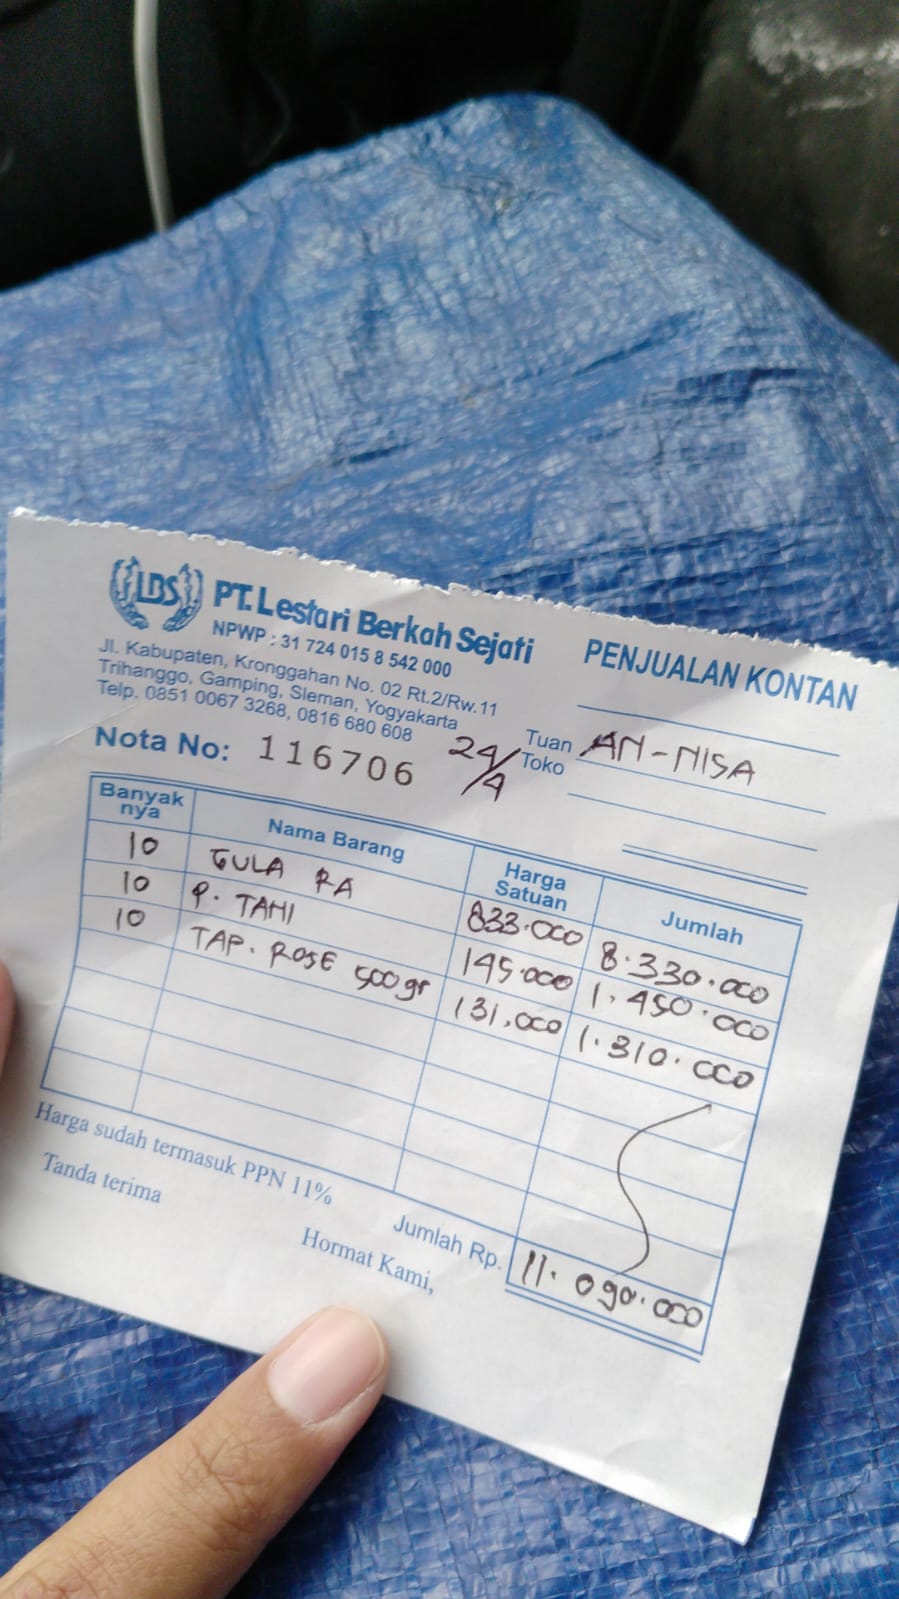 LBS PT. Lestari Berkah Sejati
NPWP : 31 724 015 8 542 000
Jl. Kabupaten, Kronggahan No. 02 Rt.2/Rw.11
Trihanggo, Gamping, Sleman, Yogyakarta
Telp. 0851 0067 3268, 0816 680 608
PENJUALAN KONTAN
Nota No: 116706 24/4
Tuan AN-NISA
Toko
Banyak nya Nama Barang Harga Satuan Jumlah
10 GULA RA 833.000 8.330.000
10 P. TAHI 145.000 1.450.000
10 TAP. ROSE 500gr 131.000 1.310.000
Harga sudah termasuk PPN 11%
Jumlah Rp. 11.090.000
Tanda terima
Hormat Kami,